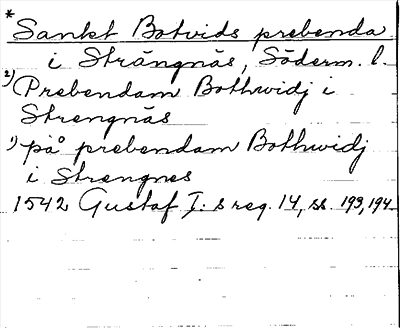 * Sankt Botvids prebenda
i Strängnäs, Söderm. l.
2) Prebendam Bothwidj i
Strengnäs
1) på prebendam Bothwidj
i Strengnes
1542 Gustaf I:s reg. 14, ss. 193, 194